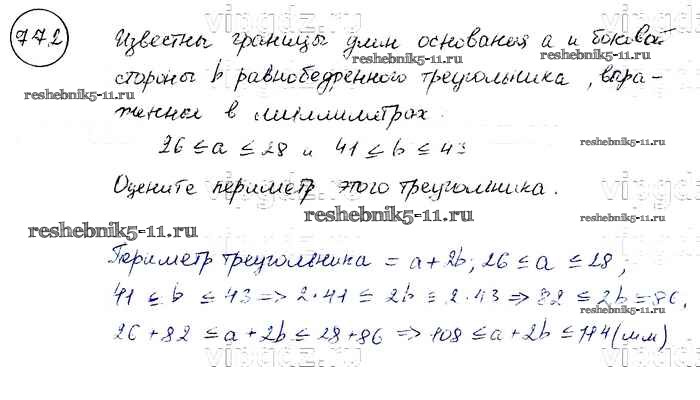 772
Известны границы длин основания a и боковой
стороны b равнобедренного треугольника, выра-
женные в миллиметрах.
26 ≤ a ≤ 28 и 41 ≤ b ≤ 43
Оцените периметр этого треугольника.
Периметр треугольника = a + 2b; 26 ≤ a ≤ 28;
41 ≤ b ≤ 43 => 2·41 ≤ 2b ≤ 2·43 => 82 ≤ 2b ≤ 86.
26 + 82 ≤ a + 2b ≤ 28 + 86 => 108 ≤ a + 2b ≤ 114 (мм)
reshebnik5-11.ru
reshebnik5-11.ru
reshebnik5-11.ru
reshebnik5-11.ru
reshebnik5-11.ru
reshebnik5-11.ru
reshebnik5-11.ru
reshebnik5-11.ru
reshebnik5-11.ru